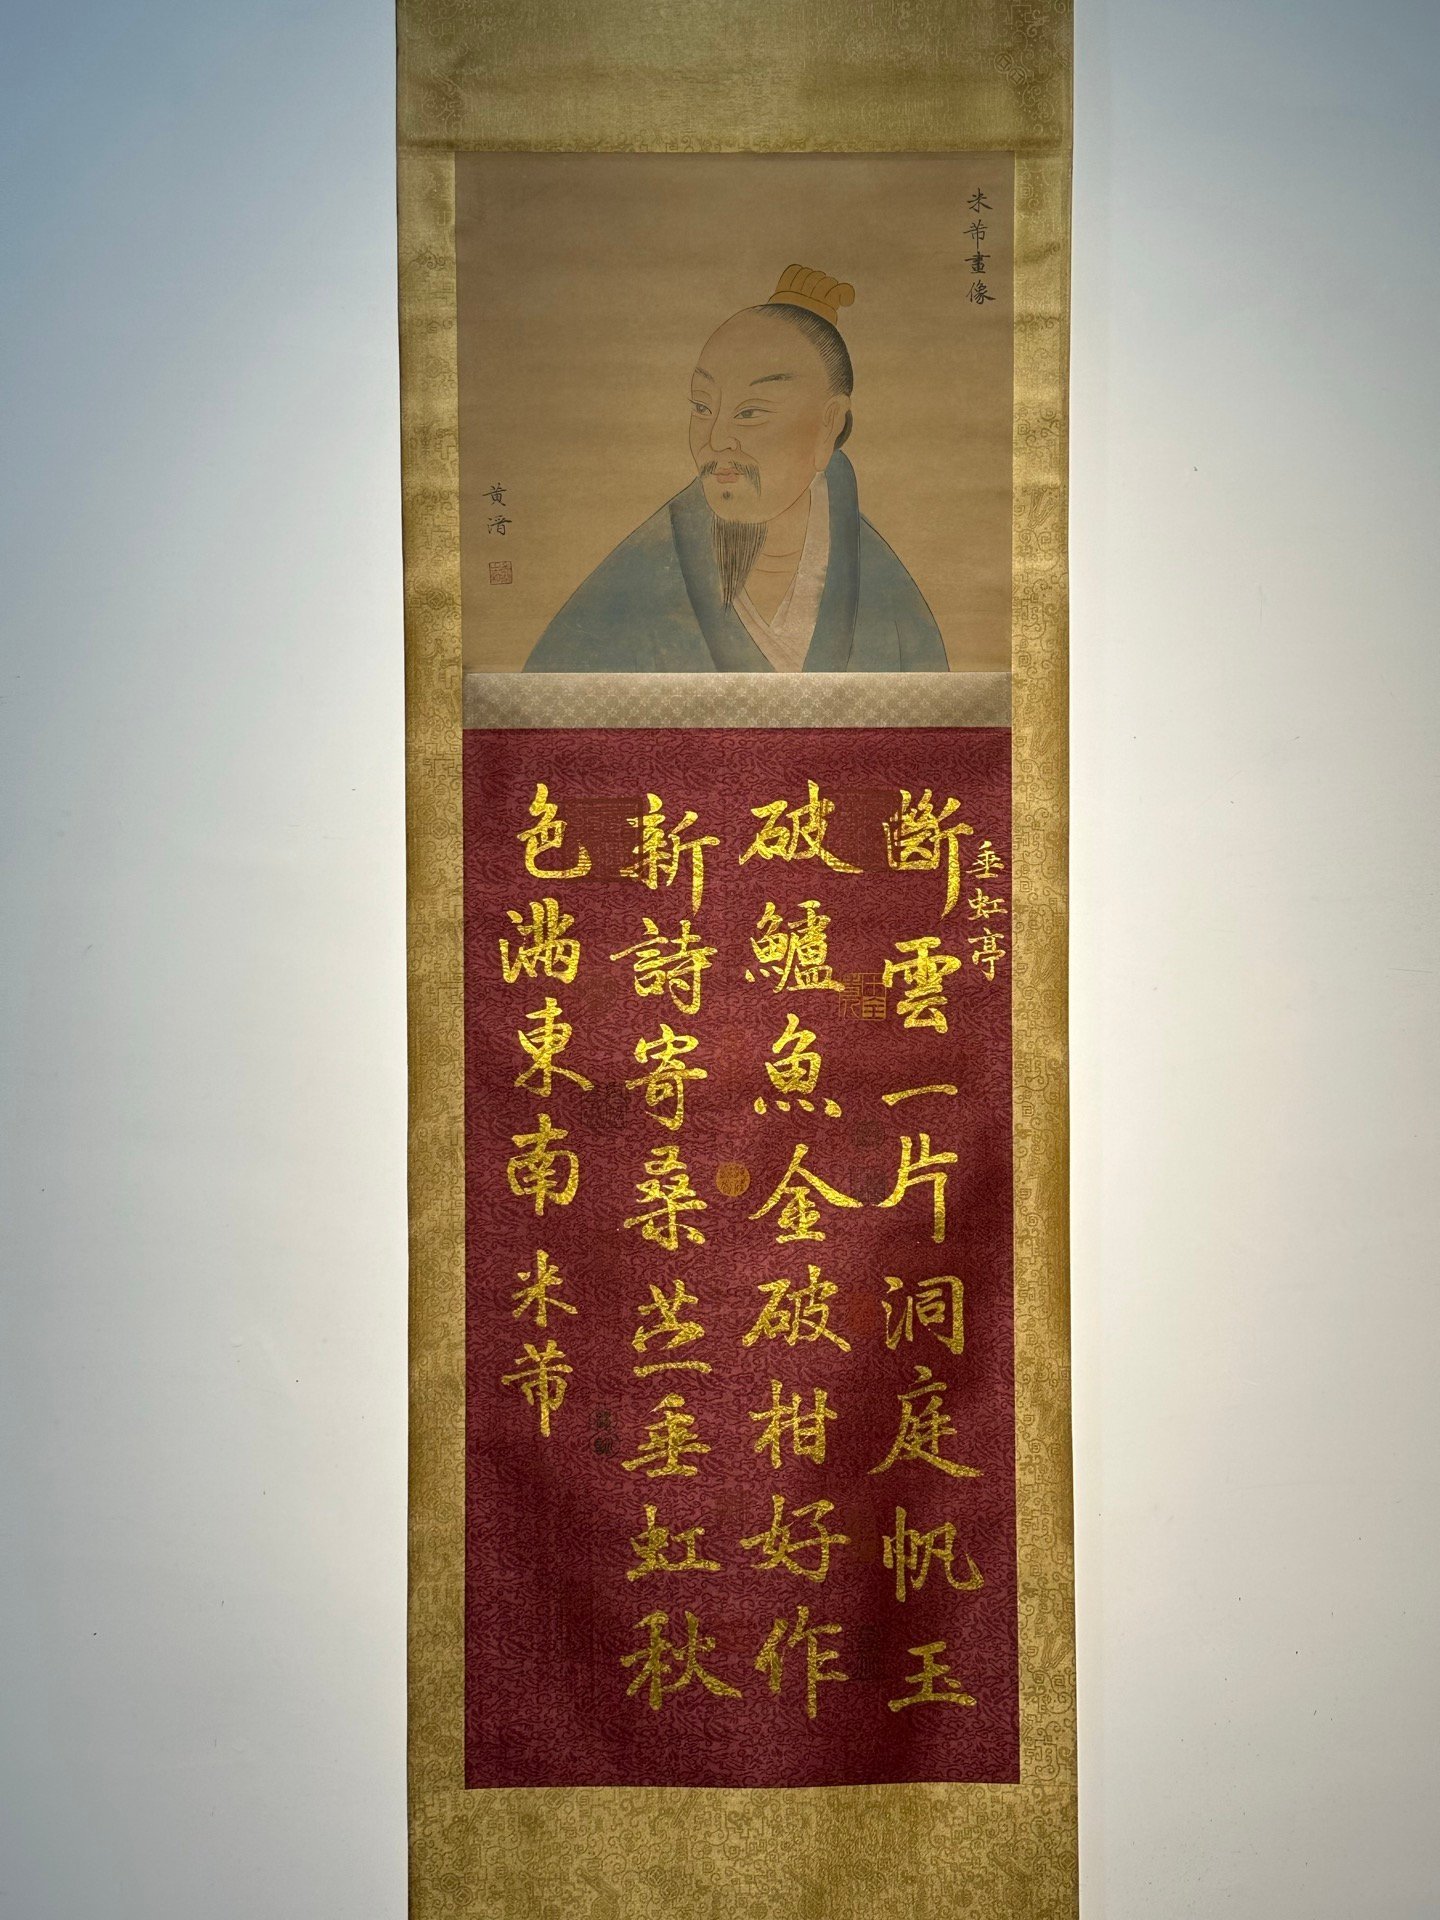 米芾畫像
黃溍
垂虹亭
斷雲一片洞庭帆玉
破鱸魚金破柑好作
新詩寄桑苎垂虹秋
色滿東南米芾